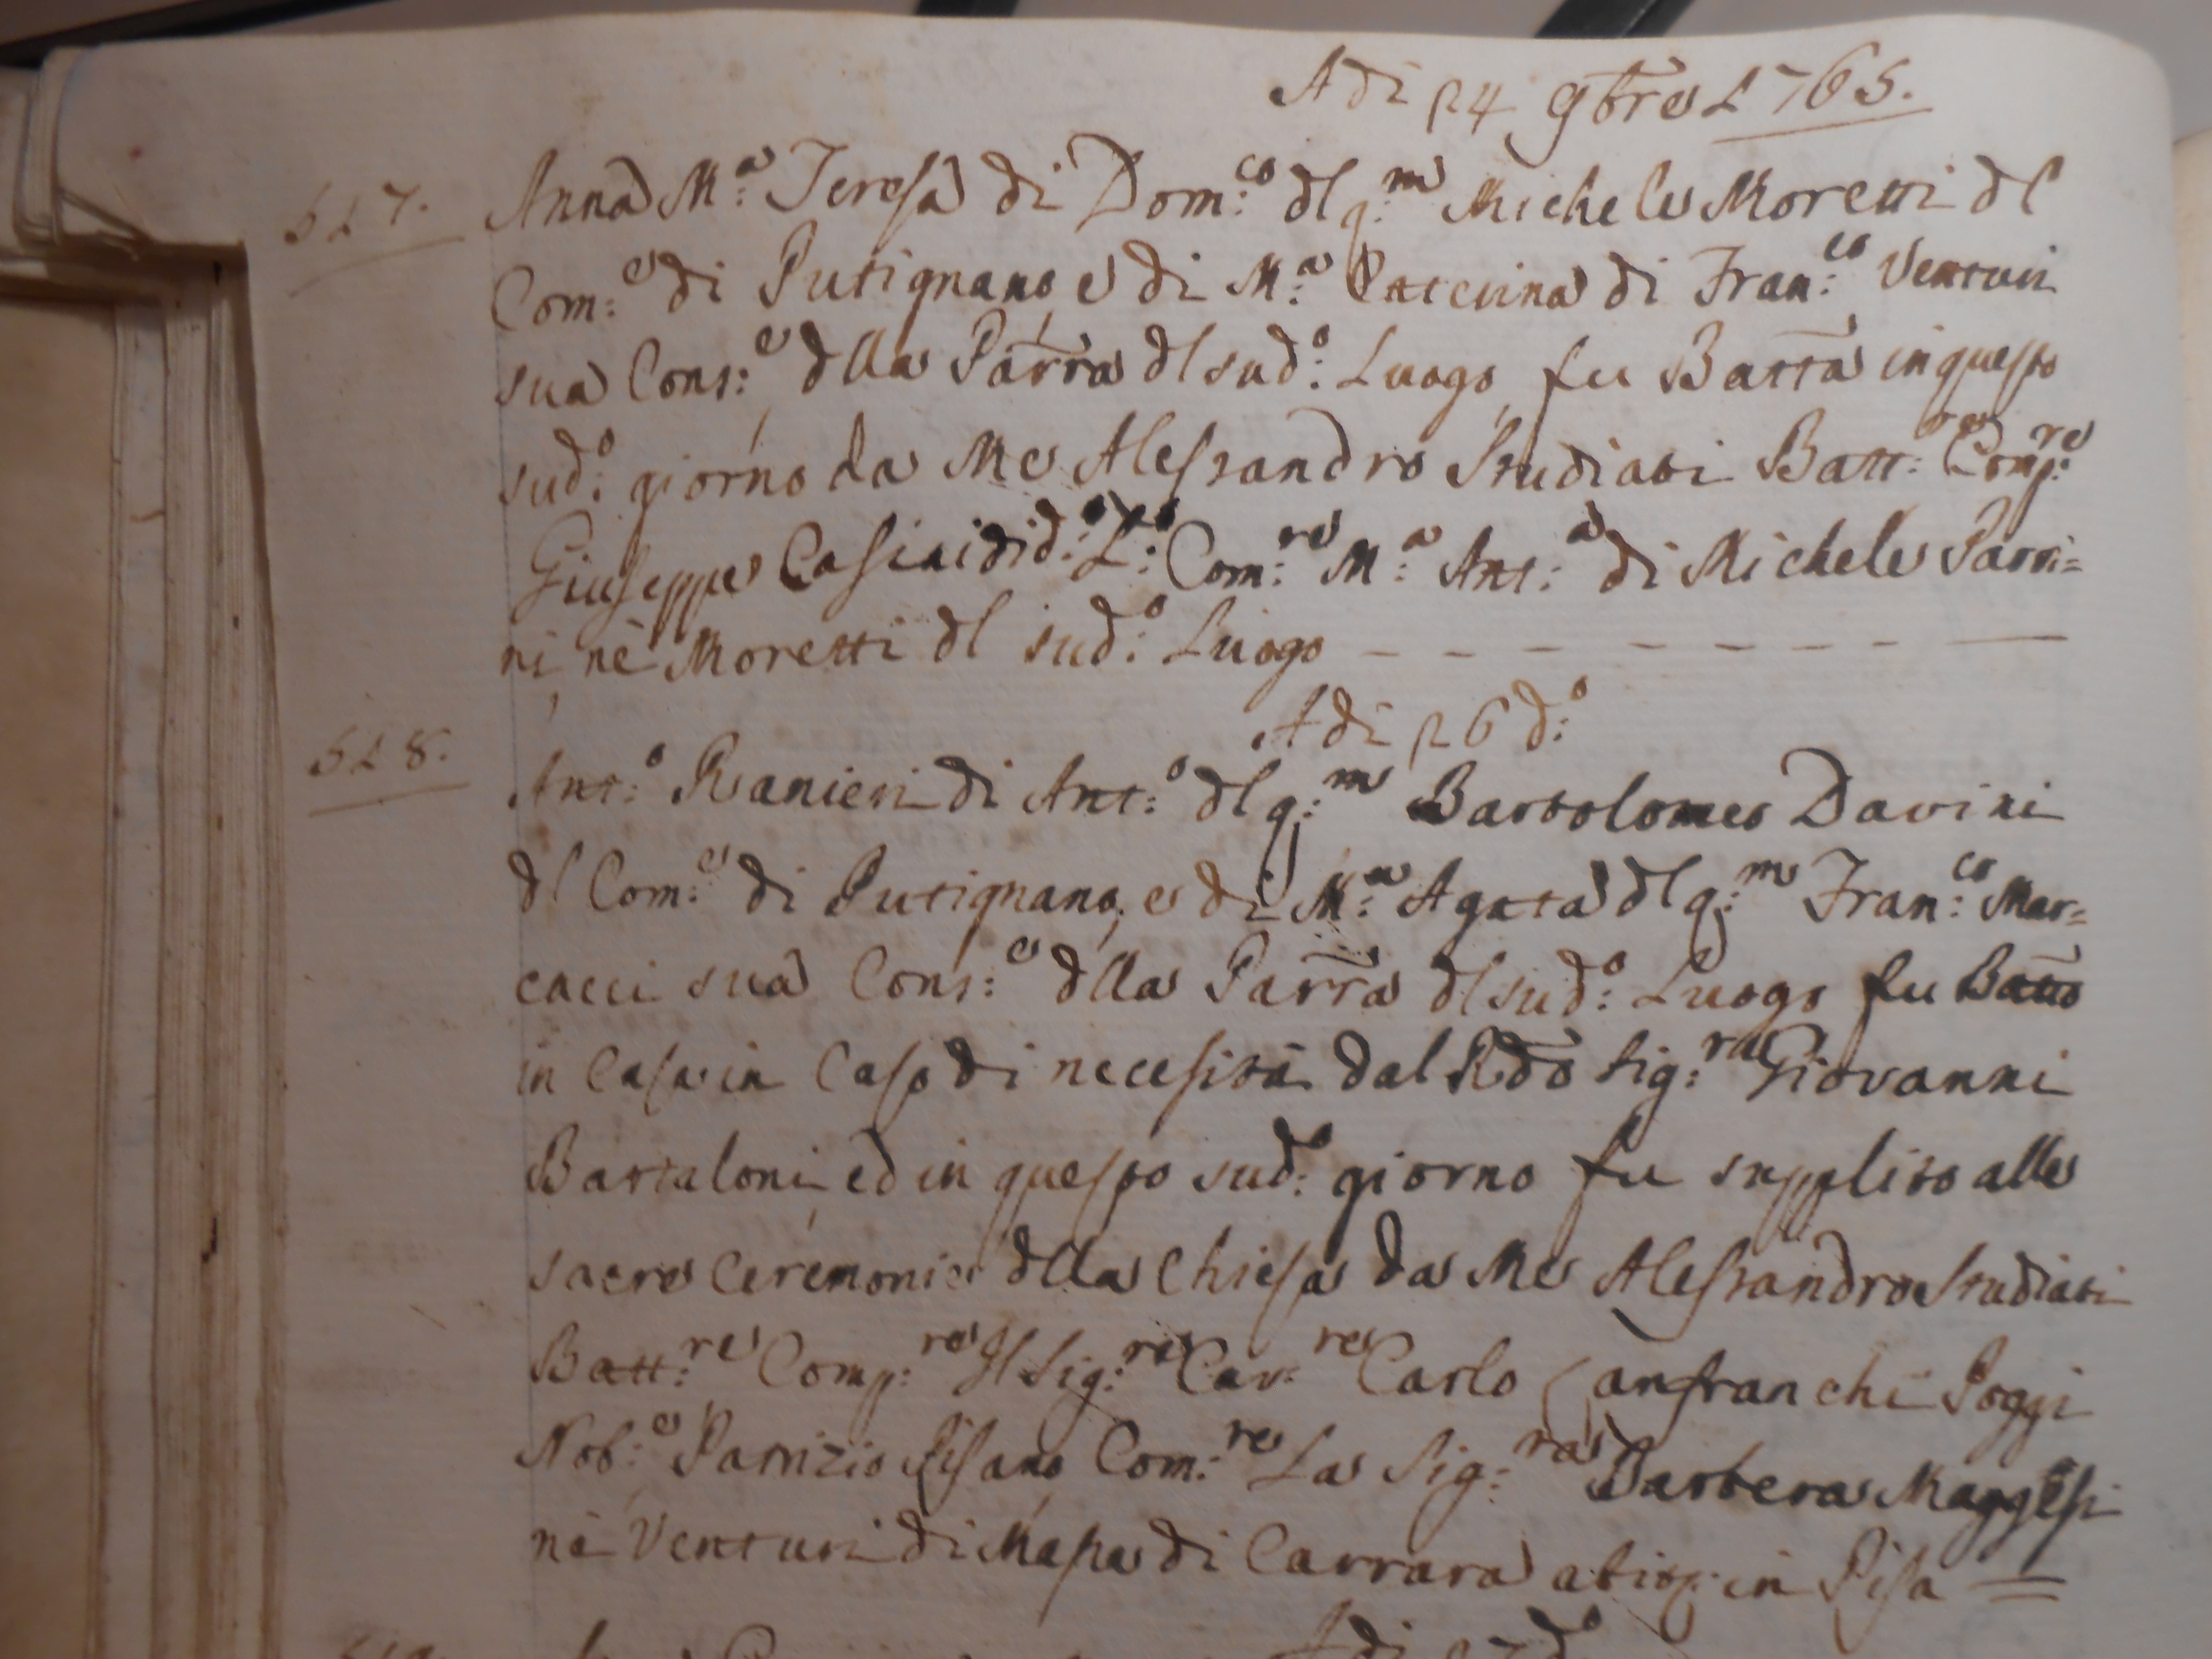 Adi 24 9bre 1765.
517. Anna M:a Teresa di Dom:co dl q:m Michele Moretti dl
Com:e di Putignano, e di M:a Caterina di Fran:co Venturi
sua Cons:e dlla Parra dl sud:o Luogo, fu Batta in questo
sud:o giorno da Me Alessandro Studiati Batt:re Comp:re
Giuseppe Casini di d:o L:o Com:re M:a Ant:a di Michele Parri=
ni nè Moretti dl sud:o Luogo
Adi 26 d:o
518. Ant:o Ranieri di Ant:o dl q:m Bartolomeo Davini
dl Com:e di Putignano, e di M:a Agata dl q:m Fran:co Mar=
cacci sua Cons:e dlla Parra dl sud:o Luogo fu Batto
in Casa in Caso di necesità dal Rdo Sig:re Giovanni
Bartaloni, ed in questo sud:o giorno fu supplito alle
sacre Ceremonie dlla Chiesa da Me Alessandro Studiati
Batt:re Comp:re Il Sig:re Cav:re Carlo Lanfranchi Poggi
Nob:e Patrizio Pisano, Com:re La Sig:ra Barbera
nè Venturi di Massa di Carrara in Pisa =
Adi 27 d:o